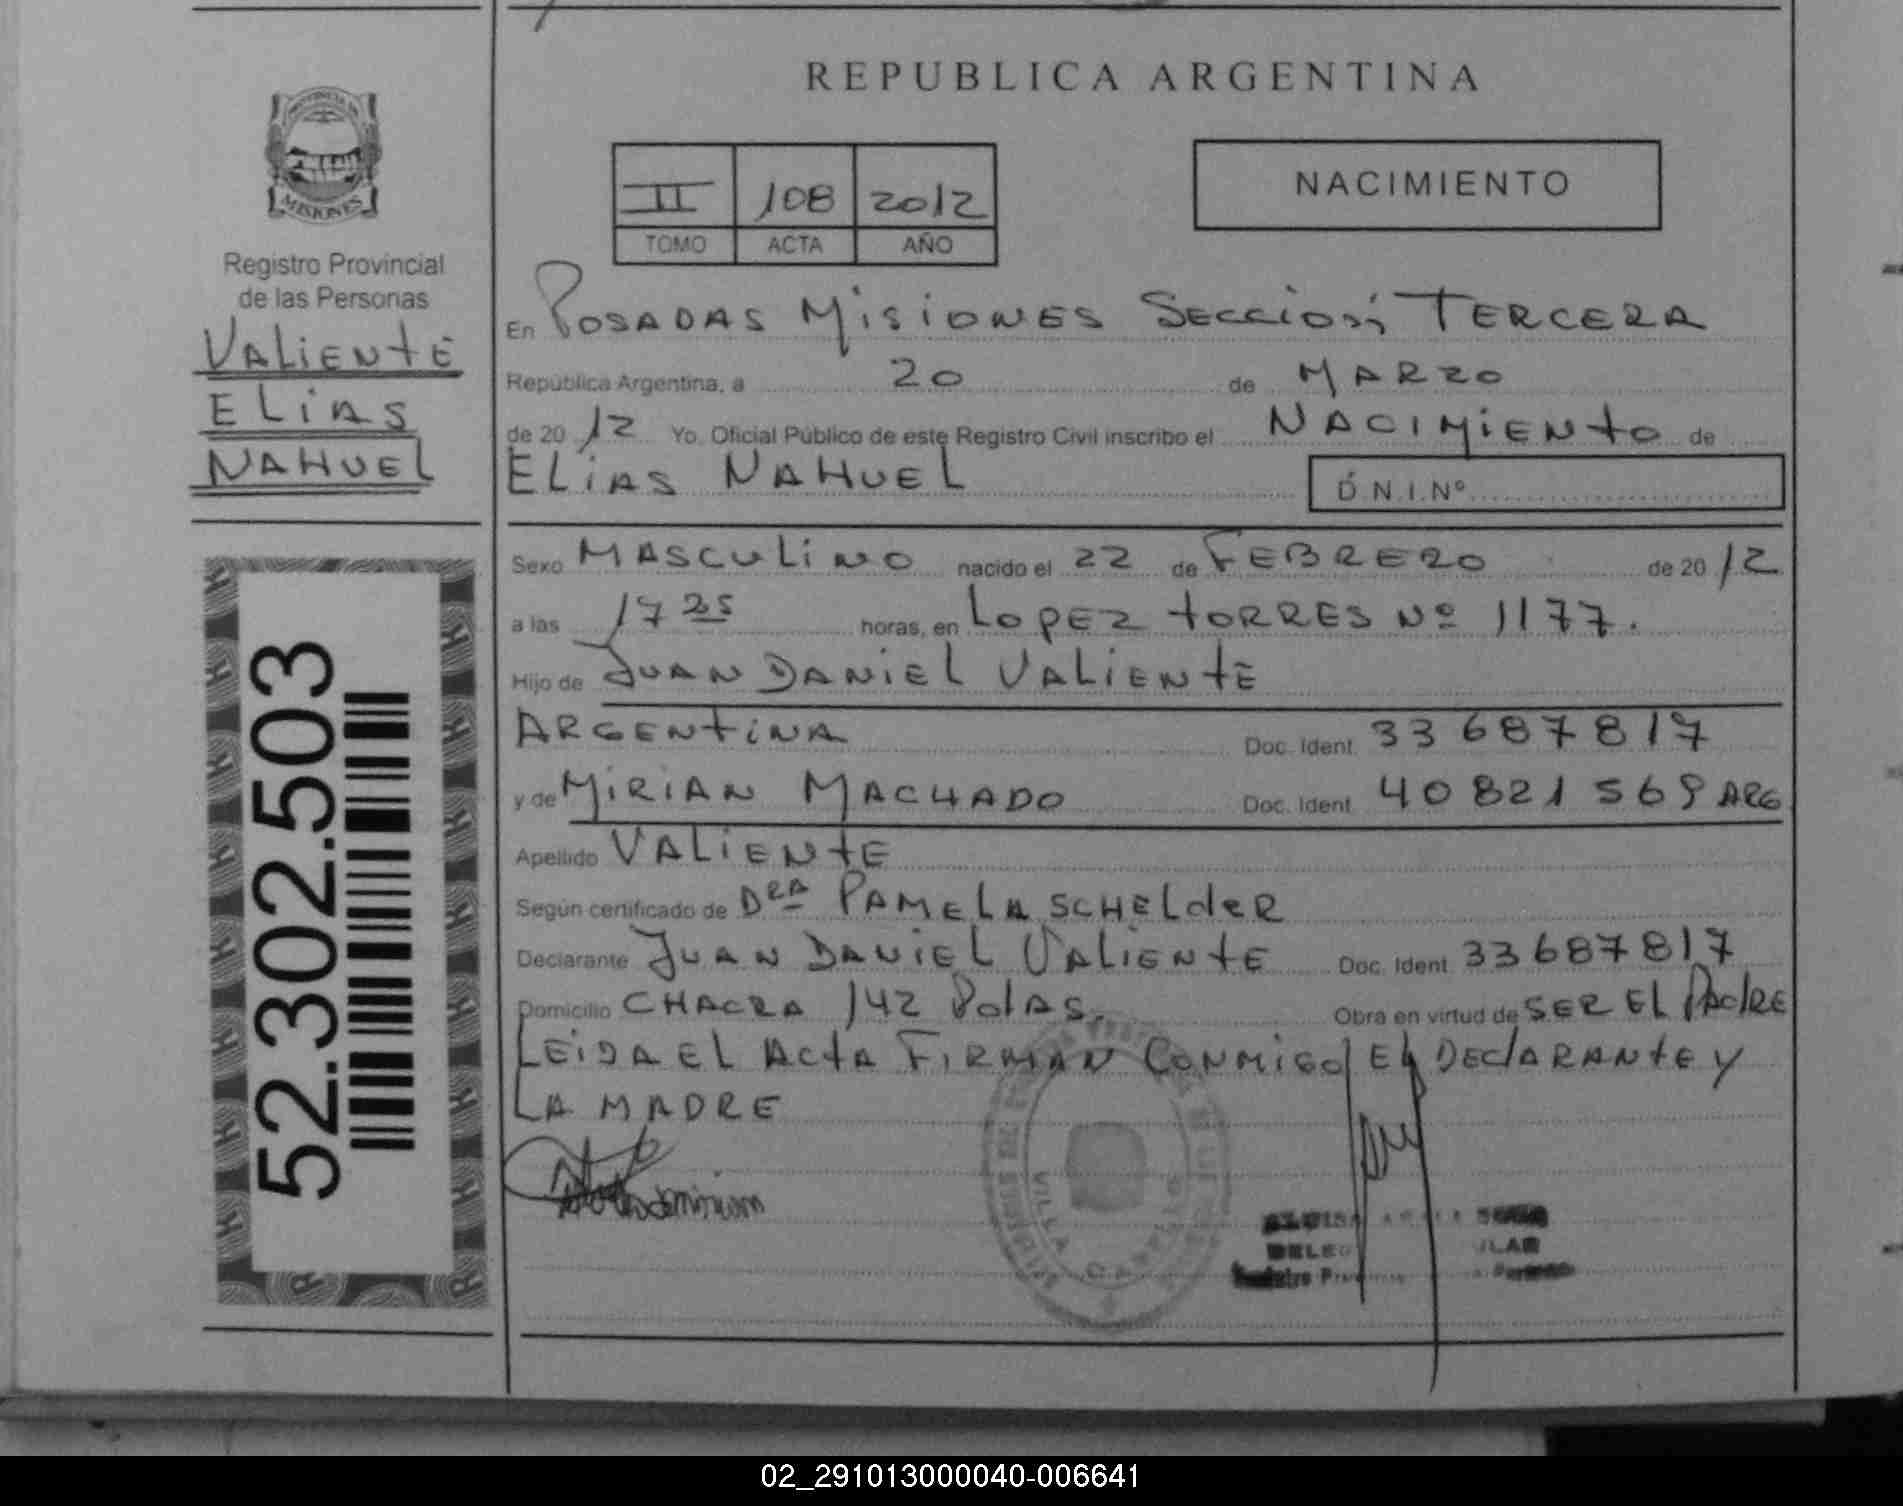 REPUBLICA ARGENTINA
PROVINCIA DE
MISIONES
Registro Provincial
de las Personas
VALIENTE
ELIAS
NAHUEL
52.302.503
II 108 2012
TOMO ACTA AÑO
NACIMIENTO
En POSADAS MISIONES SECCION TERCERA
República Argentina, a 20 de MARZO
de 2012 Yo, Oficial Público de este Registro Civil inscribo el NACIMIENTO de
ELIAS NAHUEL D.N.I.Nº
Sexo MASCULINO nacido el 22 de FEBRERO de 2012
a las 17 25 horas, en LOPEZ TORRES Nº 1177.
Hijo de JUAN DANIEL VALIENTE
ARGENTINA Doc. Ident. 33 687 817
y de MIRIAN MACHADO Doc. Ident. 40 821 569 ARG
Apellido VALIENTE
Según certificado de DRA PAMELA SCHELDER
Declarante JUAN DANIEL VALIENTE Doc. Ident. 33687817
Domicilio CHACRA 142 PDAS. Obra en virtud de SER EL PADRE
LEIDA EL ACTA FIRMAN CONMIGO EL DECLARANTE Y
LA MADRE
VILLA CABELLO
02_291013000040-006641